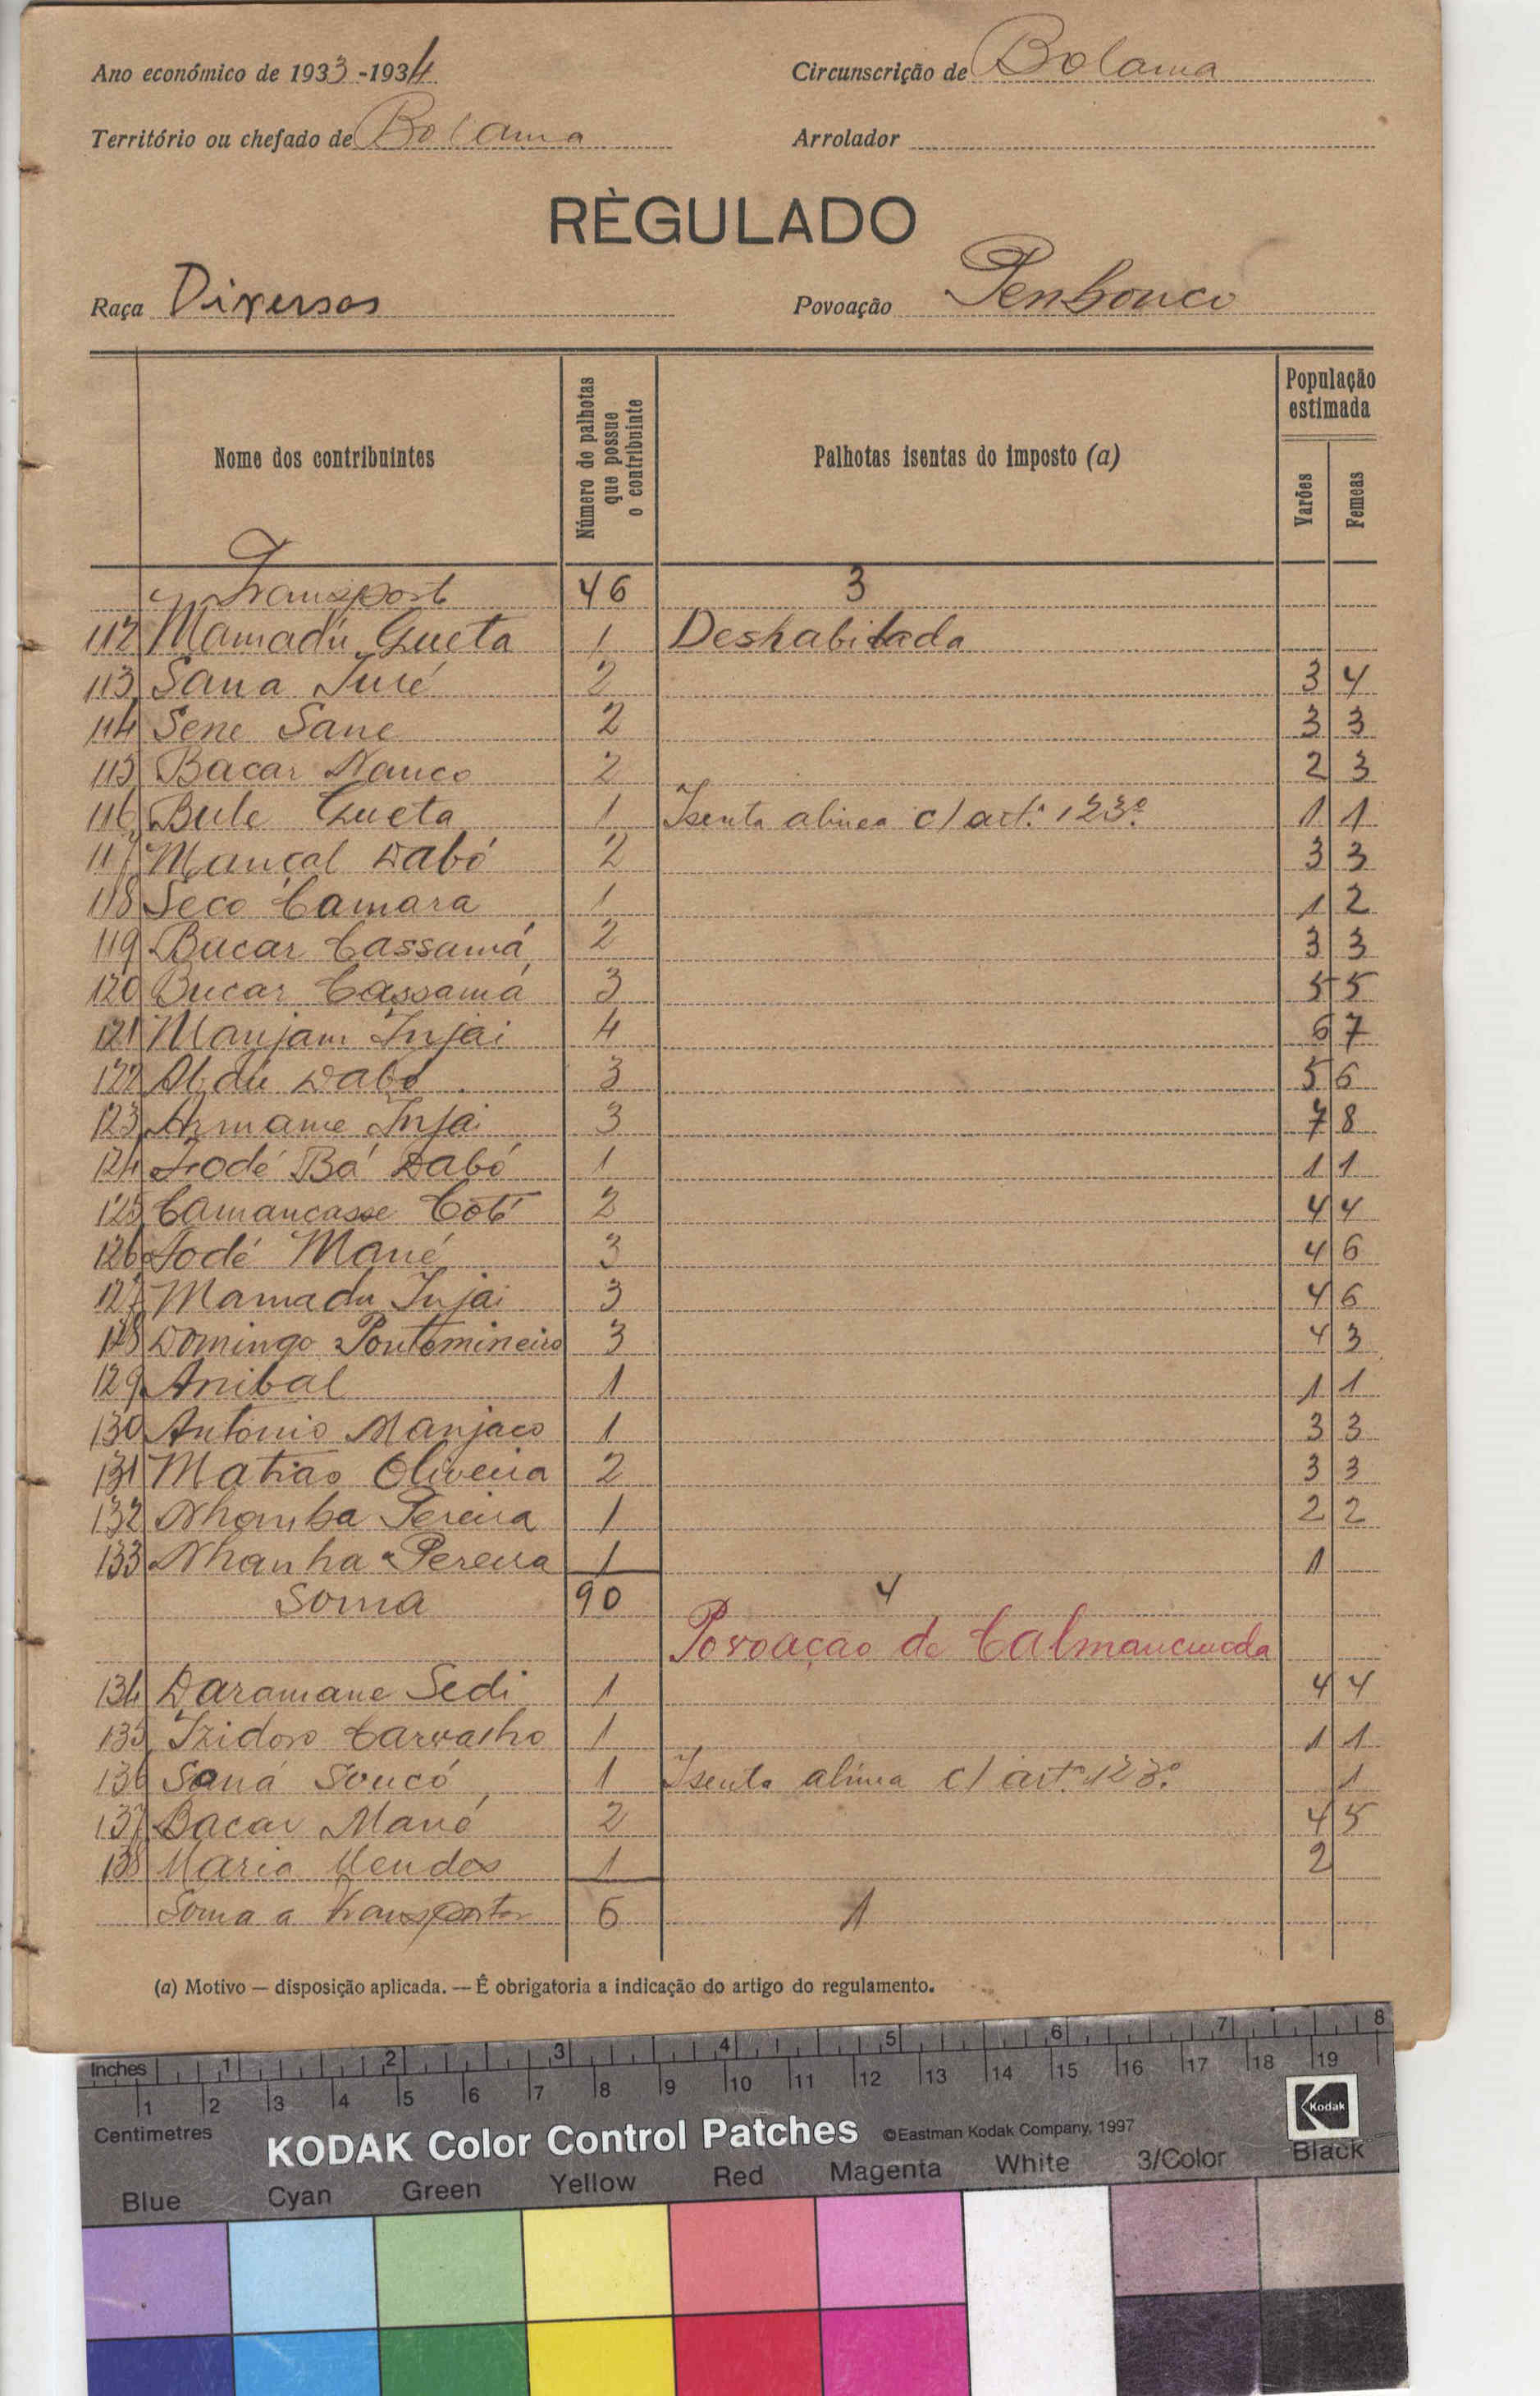 Ano económico de 1933-1934 Circunscrição de Bolama
Território ou chefado de Bolama Arrolador
RÈGULADO
Raça Diversos Povoação
Nome dos contribuintes Número de palhotas que possue o contribuinte Palhotas isentas do imposto (a) População estimada Varões Femeas
Transport 46 3
112 Mamadú Gueta 1 Deshabitada
113 Sana Turé 2 3 4
114 Sene Sane 2 3 3
115 Bacar 2 2 3
116 Bule Gueta 1 Isenta alinea c/ art.º 123º 1 1
117 Mançal Dabó 2 3 3
118 Seco Camara 1 1 2
119 Bacar Cassamá 2 3 3
120 Bucar Cassamá 3 5 5
121 Manjam Injai 4 6 7
122 Abdú Dabó 3 5 6
123 Armame Injai 3 7 8
124 Fodé Bá Dabó 1 1 1
125 Camancasse 2 4 4
126 Fodé Mané 3 4 6
127 Mamadu Injai 3 4 6
128 Domingo Pontomineiro 3 4 3
129 Anibal 1 1 1
130 Antonio Manjaco 1 3 3
131 Matias Oliveira 2 3 3
132 Nhamba Pereira 1 2 2
133 Nhanha Pereira 1 1
Soma 90 4
Povoação de
134 Daramane Sedi 1 4 4
135 Izidoro Carvalho 1 1 1
136 Saná Soncó 1 Isenta alinea c/ art.º 123º 1
137 Bacar Mané 2 4 5
138 Maria Mendes 1 2
Soma a transportar 6 1
(a) Motivo — disposição aplicada. — É obrigatoria a indicação do artigo do regulamento.
Inches 1 2 3 4 5 6 7 8
1 2 3 4 5 6 7 8 9 10 11 12 13 14 15 16 17 18 19
Centimetres
KODAK Color Control Patches ©Eastman Kodak Company, 1997 Kodak
Blue Cyan Green Yellow Red Magenta White 3/Color Black